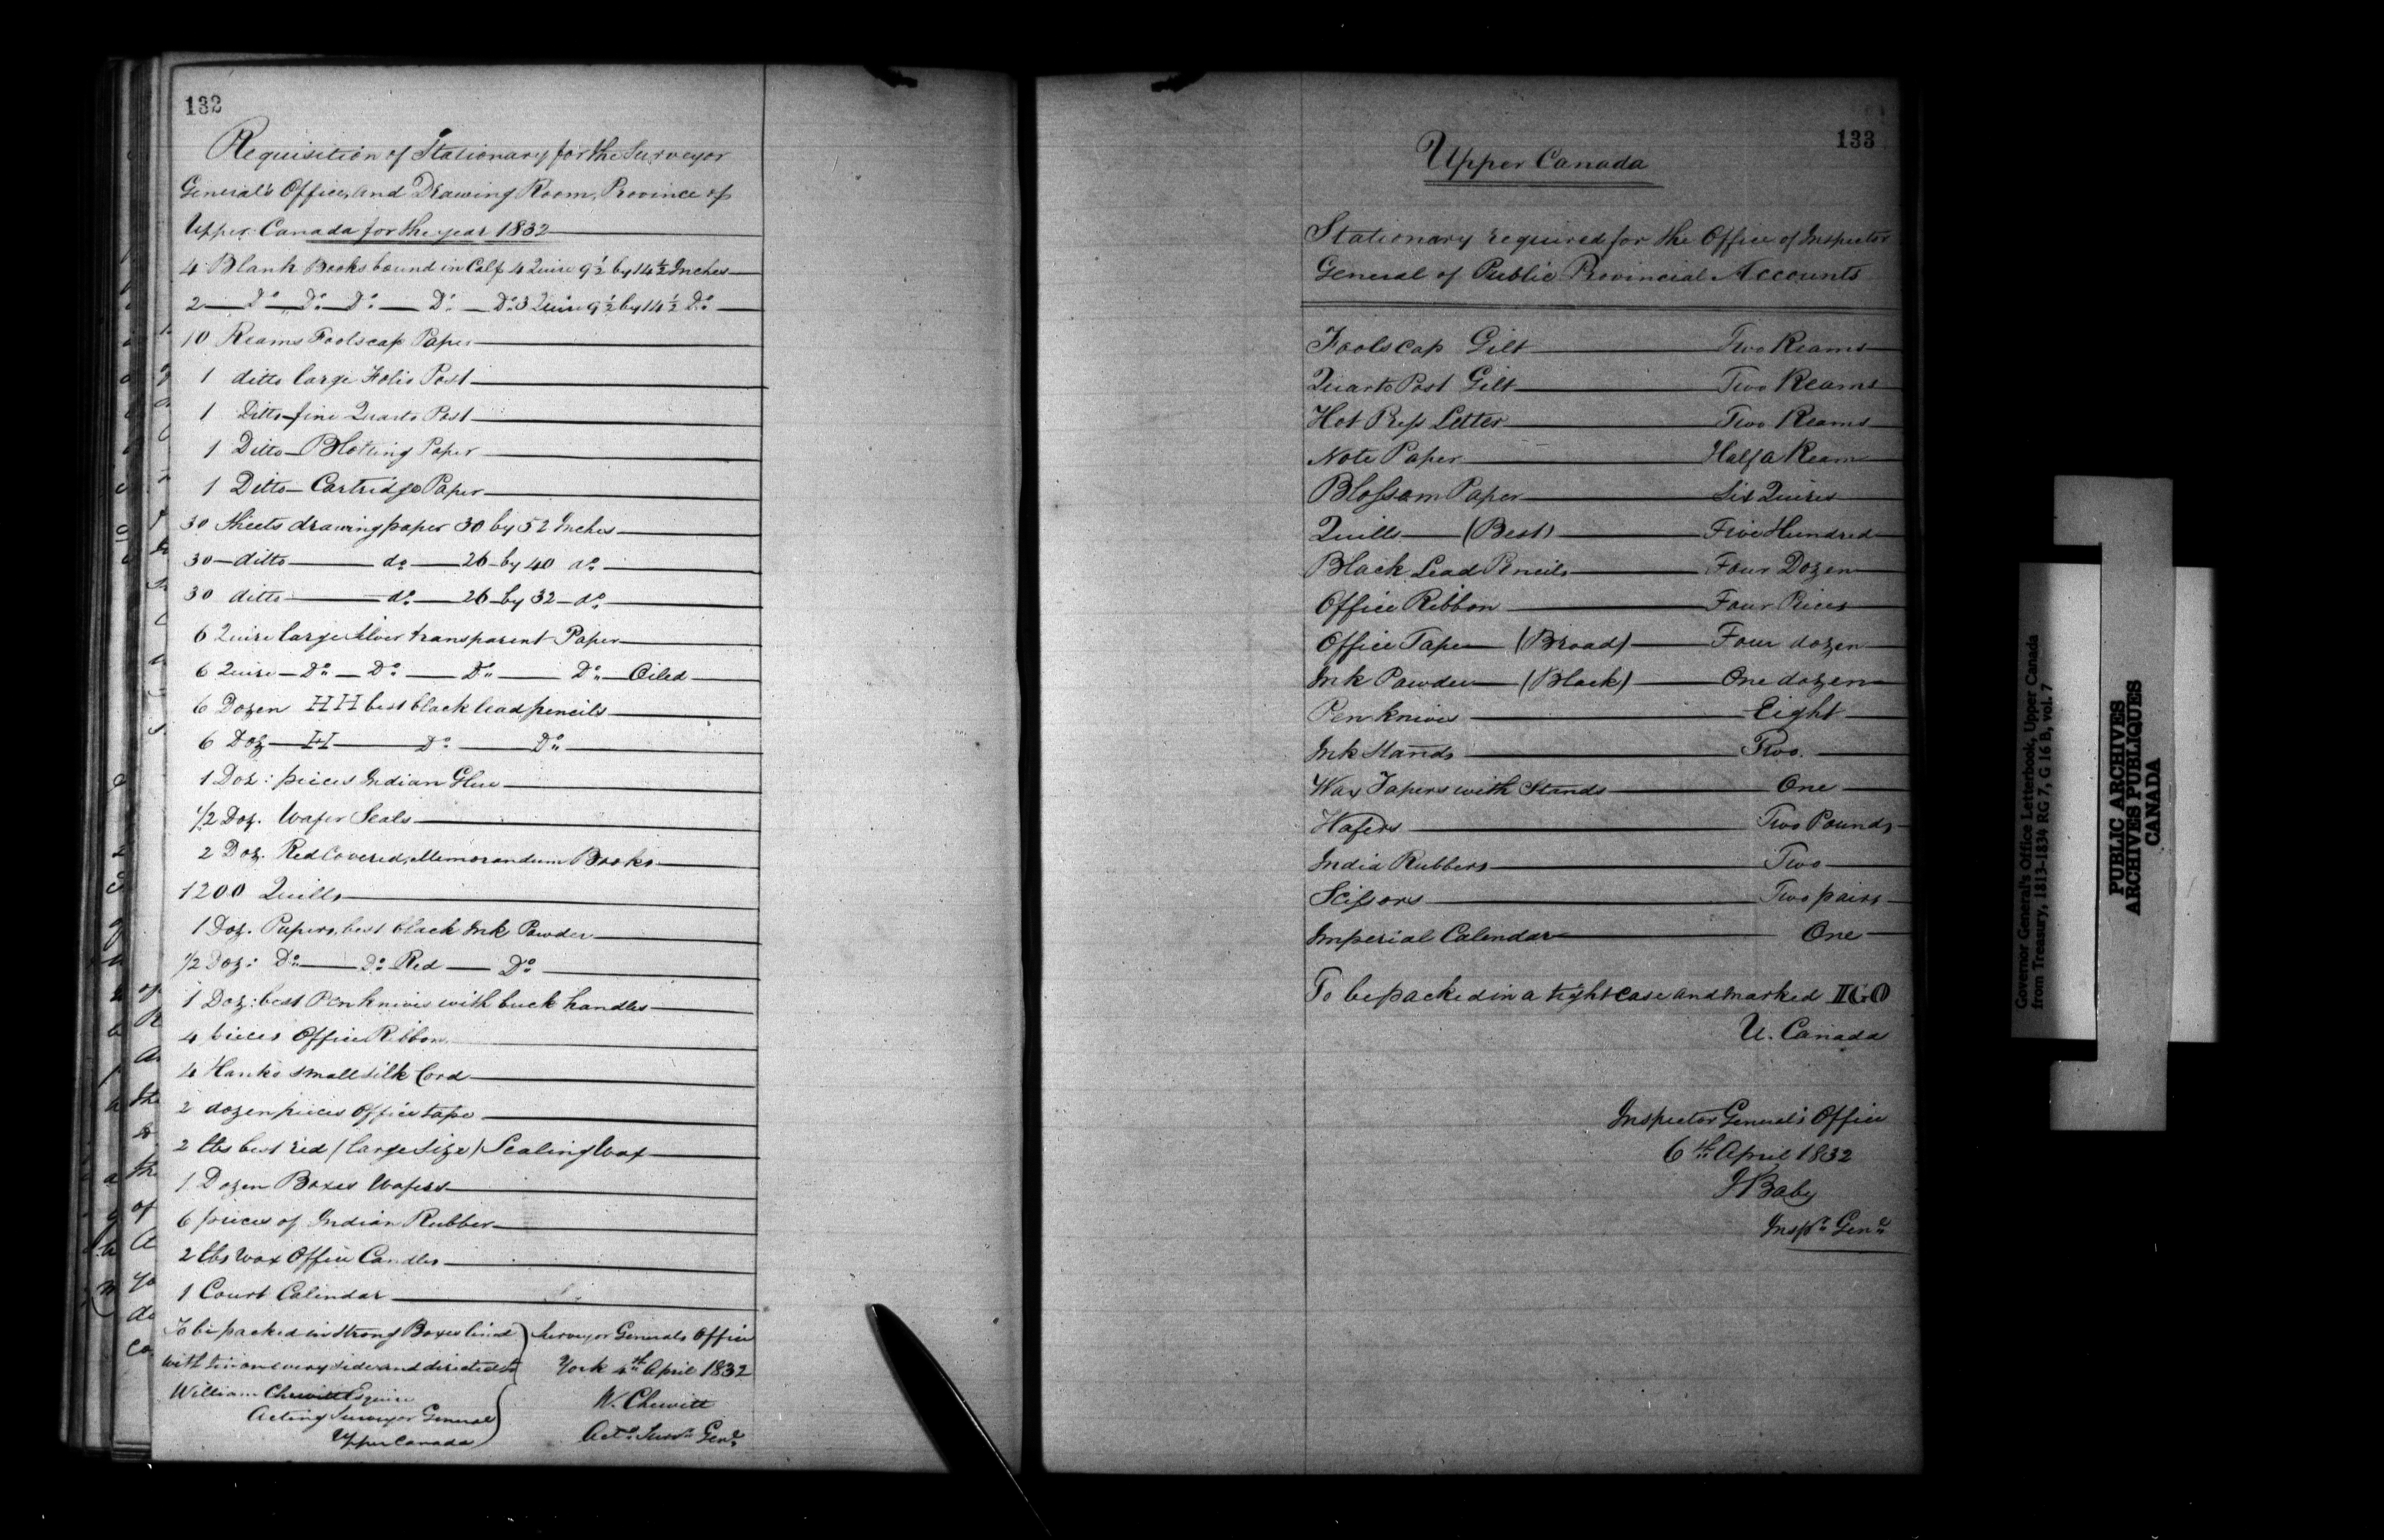 132
Requisition of Stationary for the Surveyor
General's Office, and Drawing Room, Province of
Upper Canada for the year 1832
4 Blank Books bound in Calf 4 Quire 9 1/2 by 14 1/2 Inches
2 Do Do Do Do Do 3 Quire 9 1/2 by 14 1/2 Do
10 Reams Foolscap Paper
1 ditto large Folio Post
1 Ditto fine Quarto Post
1 Ditto Blotting Paper
1 Ditto Cartridge Paper
30 Sheets drawing paper 30 by 52 Inches
30 ditto do 26 by 40 do
30 ditto do 26 by 32 do
6 Quire large silver transparent Paper
6 Quire Do Do Do Do Oiled
6 Dozen HH best black lead pencils
6 Doz H Do Do
1 Doz: pieces Indian Glue
1/2 Doz. Wafer Seals
2 Doz. Red Covered Memorandum Books
1200 Quills
1 Doz. Papers best black Ink Powder
1/2 Doz: Do Do Red Do
1 Doz: best Penknives with buck handles
4 pieces Office Ribbon
4 Hanks small silk Cord
2 dozen pieces Office tape
2 lbs best red (large size) Sealing Wax
1 Dozen Boxes Wafers
6 pieces of Indian Rubber
2 lbs Wax Office Candles
1 Court Calendar
To be packed in strong Boxes lined
with tin on every side and directed to
William Chewett Esquire
Acting Surveyor General
Upper Canada
Surveyor Generals Office
York 4th April 1832
W. Chewitt
Actg Survr Genl
133
Upper Canada
Stationary required for the Office of Inspector
General of Public Provincial Accounts
Foolscap Gilt Two Reams
Quarto Post Gilt Two Reams
Hot Press Letter Two Reams
Note Paper Half a Ream
Blossom Paper Six Quires
Quills (Best) Five Hundred
Black Lead Pencils Four Dozen
Office Ribbon Four Pieces
Office Tape (Broad) Four dozen
Ink Powder (Black) One dozen
Pen knives Eight
Ink Stands Two.
Wax Tapers with Stands One
Wafers Two Pounds
India Rubbers Two
Scissors Two pairs
Imperial Calendar One
To be packed in a tight case and marked IGO
U. Canada
Inspector General's Office
6th April 1832
J Baby
Inspr Genl
Governor General's Office Letterbook, Upper Canada
from Treasury, 1813-1834 RG 7, G 16 B, vol. 7
PUBLIC ARCHIVES
ARCHIVES PUBLIQUES
CANADA